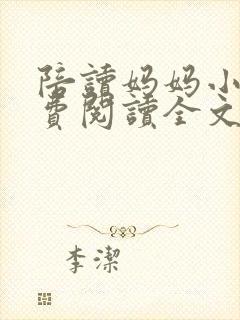 陪讀媽媽小
費閱讀全文
李潔